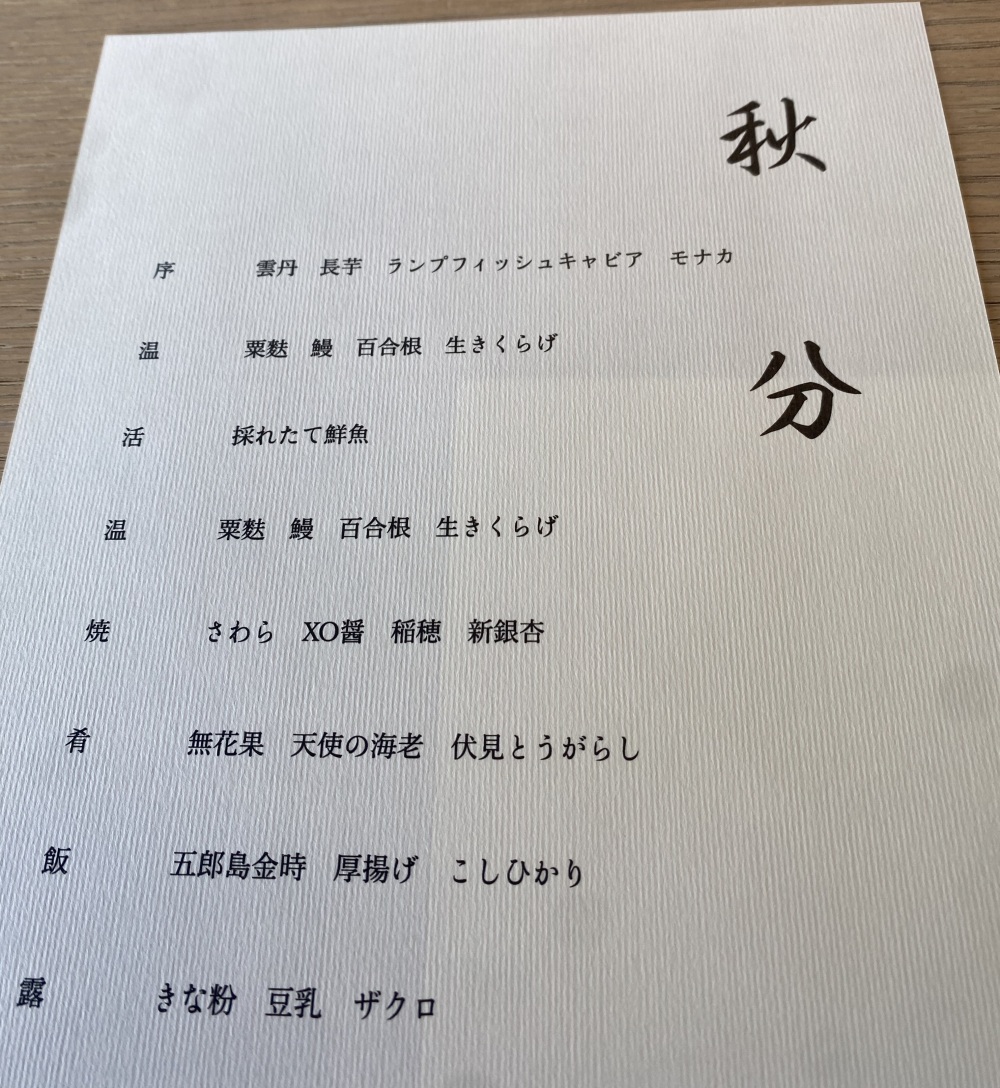 秋分
序　雲丹　長芋　ランプフィッシュキャビア　モナカ
温　粟麩　鰻　百合根　生きくらげ
活　採れたて鮮魚
温　粟麩　鰻　百合根　生きくらげ
焼　さわら　XO醤　稲穂　新銀杏
肴　無花果　天使の海老　伏見とうがらし
飯　五郎島金時　厚揚げ　こしひかり
露　きな粉　豆乳　ザクロ